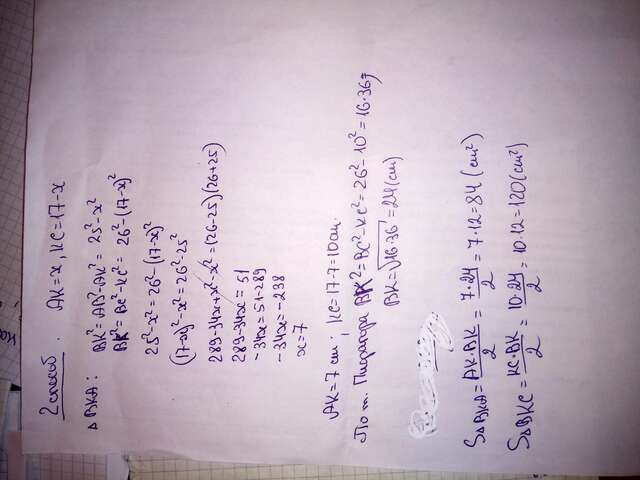 2 способ. AK = x, KC = 17 - x
Δ BKA: BK² = AB² - AK² = 25² - x²
BK² = BC² - KC² = 26² - (17-x)²
25² - x² = 26² - (17-x)²
(17-x)² - x² = 26² - 25²
289 - 34x + x² - x² = (26-25)(26+25)
289 - 34x = 51
-34x = 51 - 289
-34x = -238
x = 7
AK = 7 см; KC = 17-7 = 10 см.
По т. Пифагора BK² = BC² - KC² = 26² - 10² = 16·36;
BK = √16·36 = 24 (см)
S Δ BKA = AK·BK/2 = 7·24/2 = 7·12 = 84 (см²)
S Δ BKC = KC·BK/2 = 10·24/2 = 10·12 = 120 (см²)